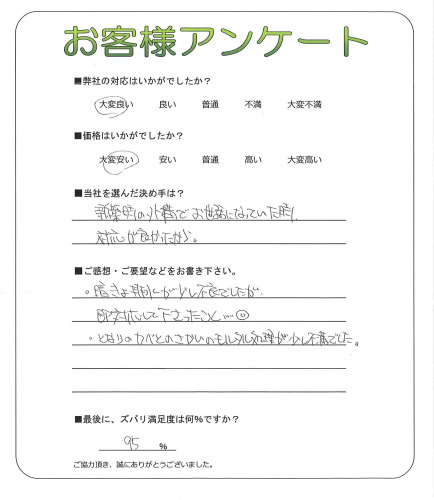 お客様アンケート
■弊社の対応はいかがでしたか？
大変良い 良い 普通 不満 大変不満
■価格はいかがでしたか？
大変安い 安い 普通 高い 大変高い
■当社を選んだ決め手は？
新築時の外構でお世話になっていた時、
対応が良かったから。
■ご感想・ご要望などをお書き下さい。
が少し不良でしたが、
即対応して下さったこと…☺
・となりのカベとのさかいのモルタル処理が少し不満でした。
■最後に、ズバリ満足度は何%ですか？
95 %
ご協力頂き、誠にありがとうございました。